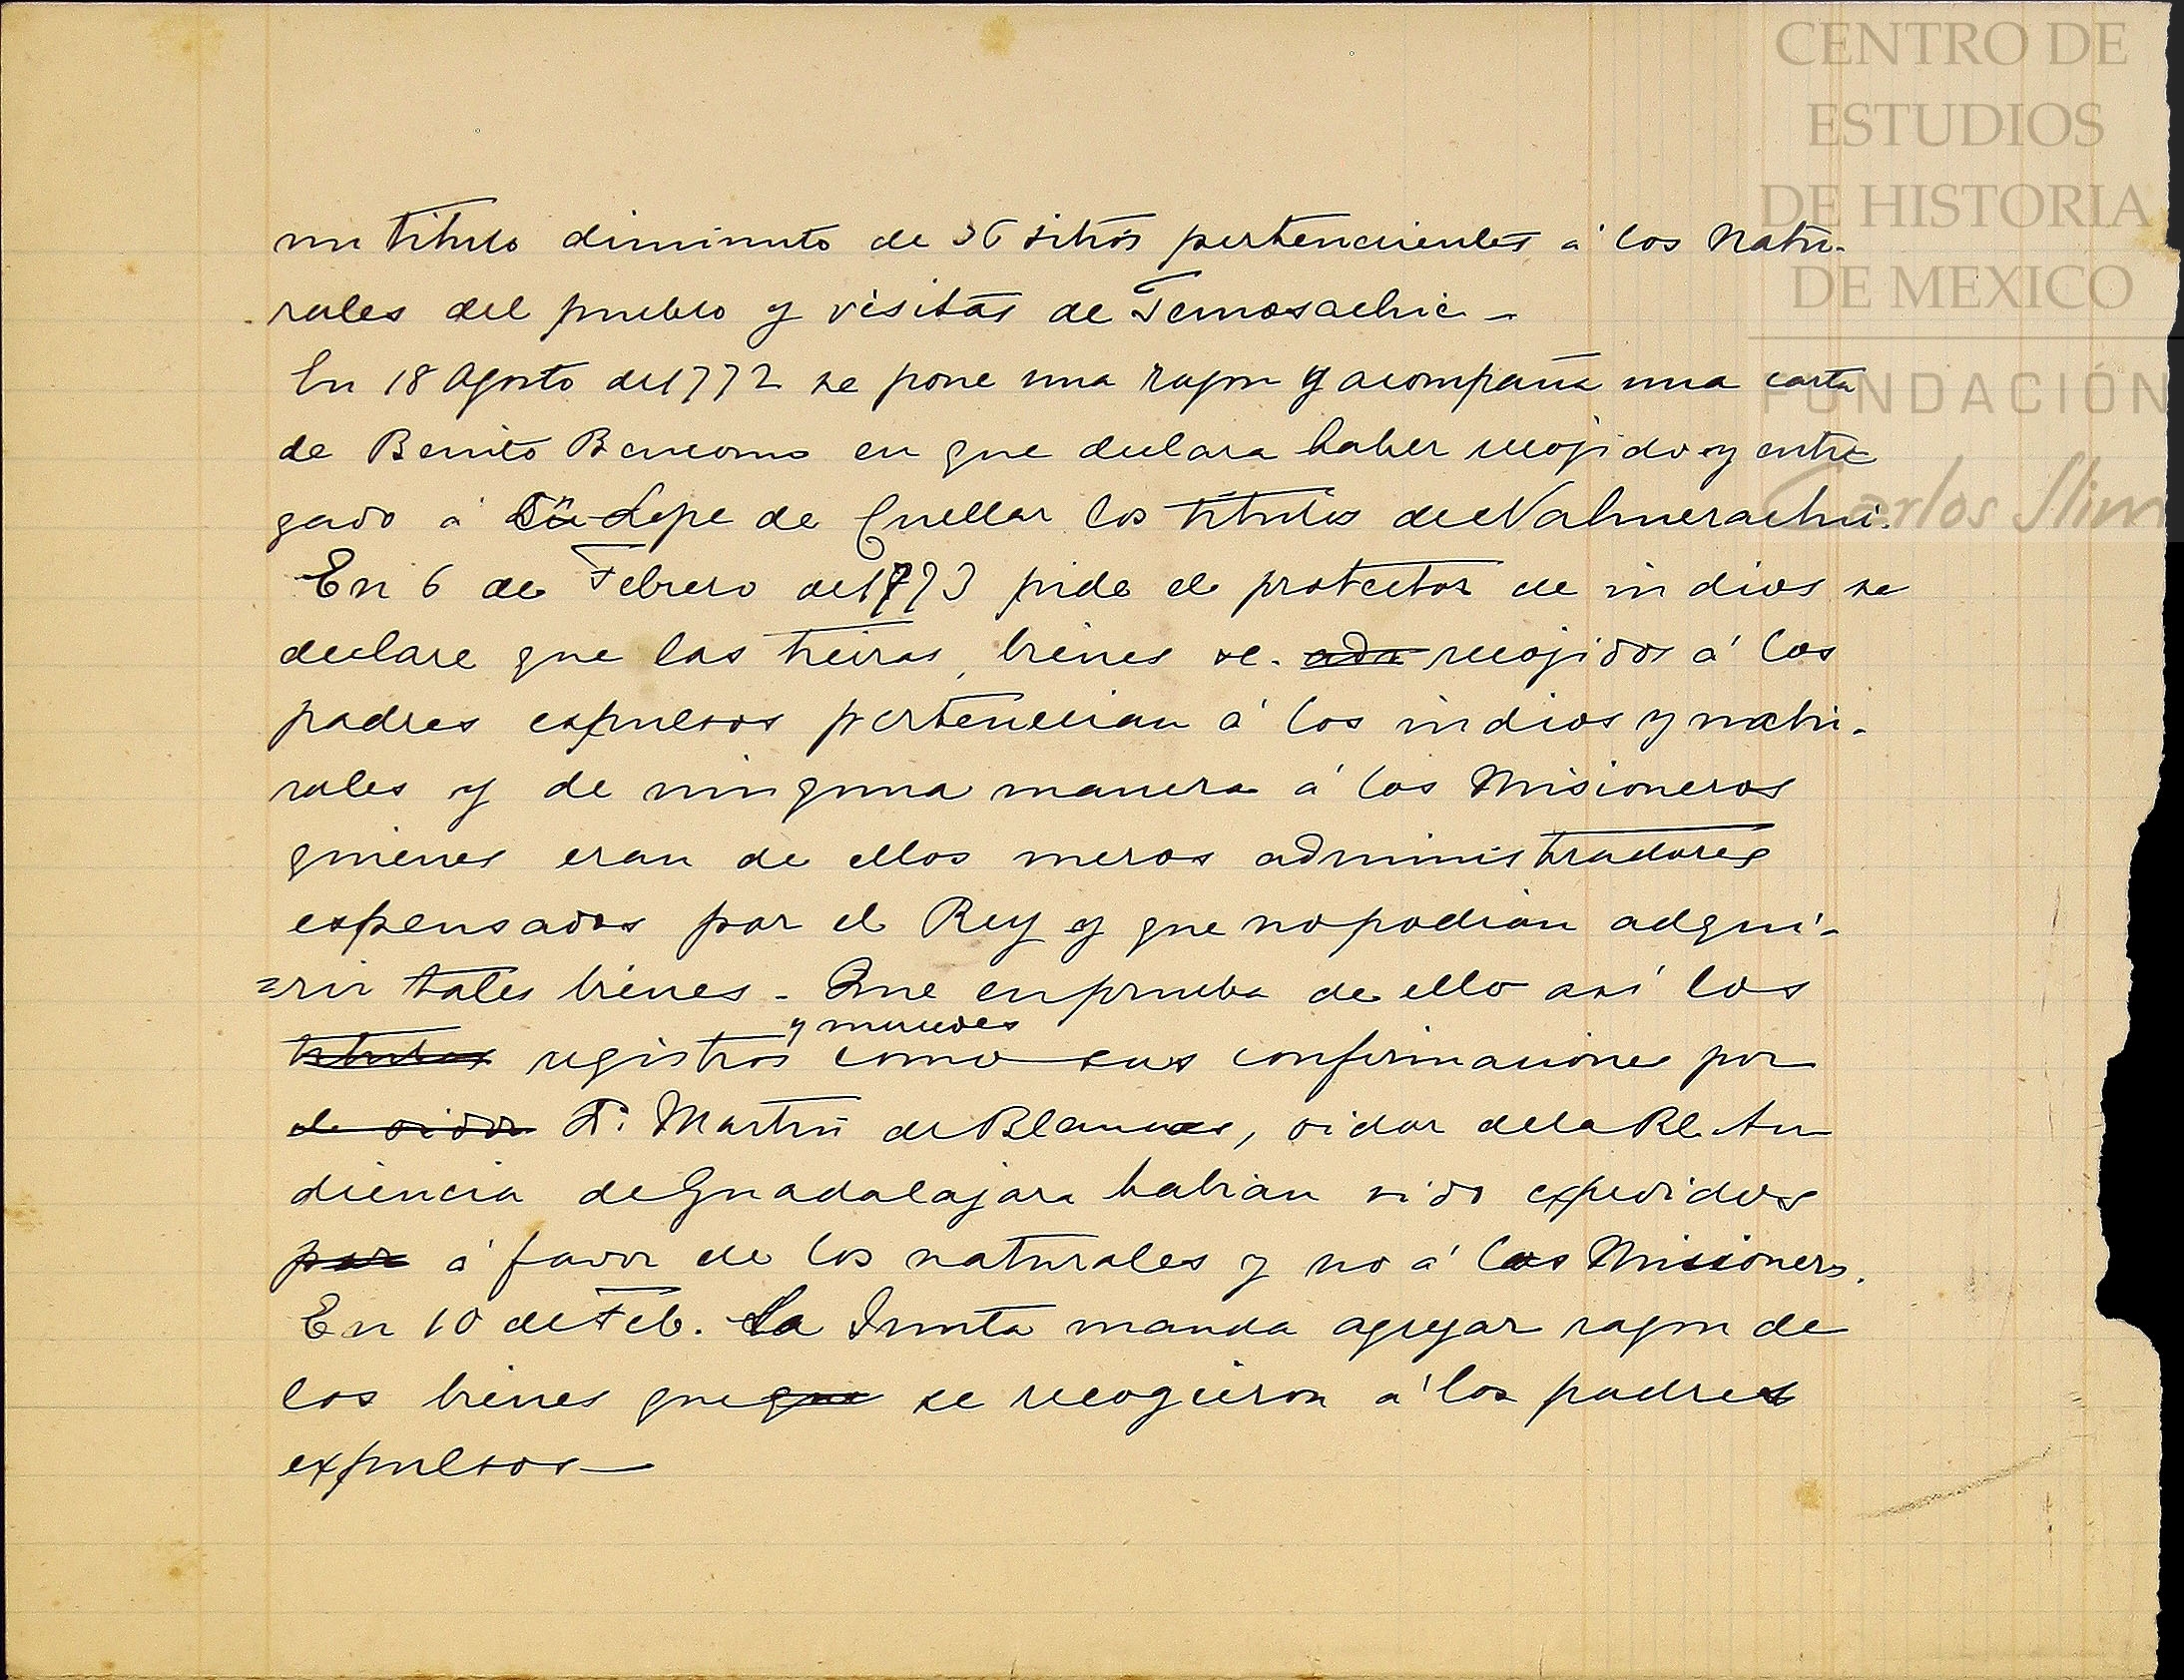 CENTRO DE
ESTUDIOS
DE HISTORIA
DE MEXICO
FUNDACIÓN
Carlos Slim
un titulo diminuto de 36 sitios pertenecientes á los Natu-
rales del pueblo y visitas de Temosachic -
En 18 Agosto de 1772 se pone una razon y acompaña una carta
de Benito Bencomo en que declara haber recojido y entre
gado á Lope de Cuellar los titulos de
En 6 de Febrero de 1773 pide el protector de indios se
declare que las tierras, bienes &c. recojidos á los
padres expulsos pertenecian á los indios y natu-
rales y de ninguna manera á los Misioneros
quienes eran de ellos meros administradores
expensados por el Rey y que no podian adqui-
=rir tales bienes - Que en prueba de ello asi los
titulos registros y mercedes como sus confirmaciones por
el oidor D. Martin de Blancas, oidor de la Rl. Au
diencia de Guadalajara habian sido expedidos
por á favor de los naturales y no á los Misioneros.
En 10 de Feb. La Junta manda agregar razon de
los bienes que que se recogieron á los padres
expulsos —